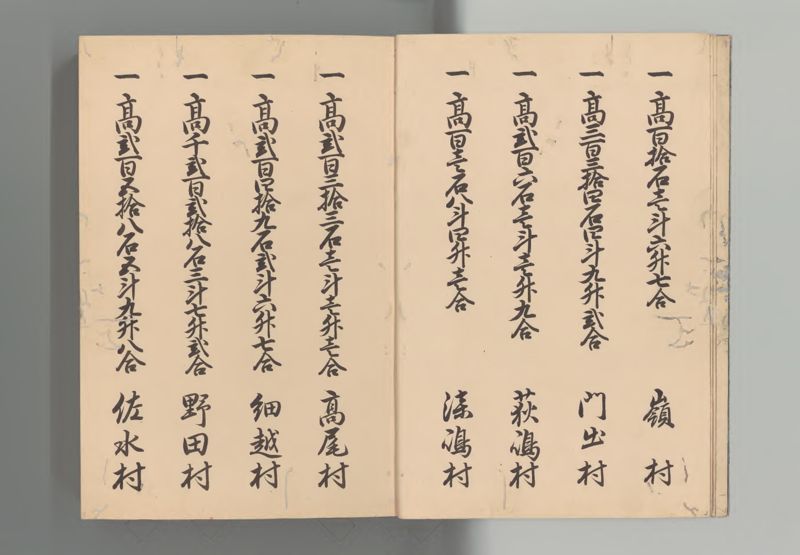 一高百拾石壱斗六升七合 嶺村
一高三百三拾四石四斗九升弐合 門出村
一高弐百六石壱斗壱升九合 荻嶋村
一高百壱石八斗四升壱合 嶋村
一高弐百三拾三石壱斗壱升壱合 高尾村
一高弐百四拾九石弐斗六升七合 細越村
一高千弐百弐拾八石三斗七升弐合 野田村
一高弐百五拾八石五斗九升八合 佐水村